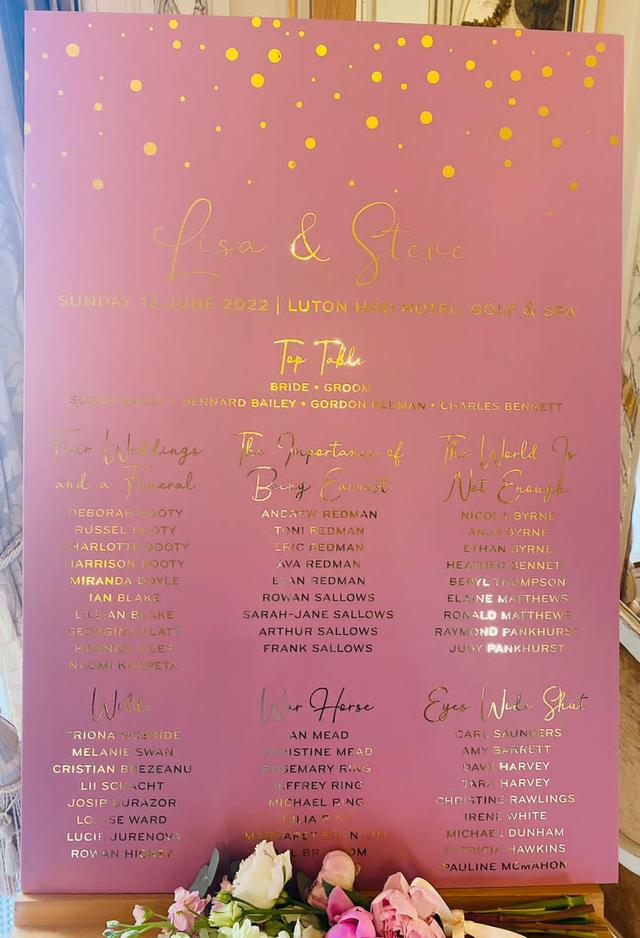 Lisa & Steve
SUNDAY 12 JUNE 2022 | LUTON HOO HOTEL, GOLF & SPA
Top Table
BRIDE • GROOM
SUSAN BAILEY • BERNARD BAILEY • GORDON REDMAN • CHARLES BENNETT
Four Weddings
and a Funeral
DEBORAH BOOTY
RUSSEL BOOTY
CHARLOTTE BOOTY
HARRISON BOOTY
MIRANDA DOYLE
IAN BLAKE
LILLIAN BLAKE
GEORGINA PLATT
HANNAH
NAOMI
The Importance of
Being Earnest
ANDREW REDMAN
TONI REDMAN
ERIC REDMAN
AVA REDMAN
EVAN REDMAN
ROWAN SALLOWS
SARAH-JANE SALLOWS
ARTHUR SALLOWS
FRANK SALLOWS
The World Is
Not Enough
NICOLA BYRNE
ANJA BYRNE
ETHAN BYRNE
HEATHER BENNETT
BERYL THOMPSON
ELAINE MATTHEWS
RONALD MATTHEWS
RAYMOND PANKHURST
JUDY PANKHURST
Wilde
TRIONA MCBRIDE
MELANIE SWAN
CRISTIAN BREZEANU
LII SCHACHT
JOSIP DURAZOR
LOUISE WARD
LUCIE JURENOVA
ROWAN HICKEY
War Horse
IAN MEAD
CHRISTINE MEAD
ROSEMARY RING
JEFFREY RING
MICHAEL RING
JULIA RING
MARGARET BRANSOM
Eyes Wide Shut
CARL SAUNDERS
AMY BARRETT
DAVE HARVEY
TARA HARVEY
CHRISTINE RAWLINGS
IRENE WHITE
MICHAEL DUNHAM
PATRICIA HAWKINS
PAULINE MCMAHON